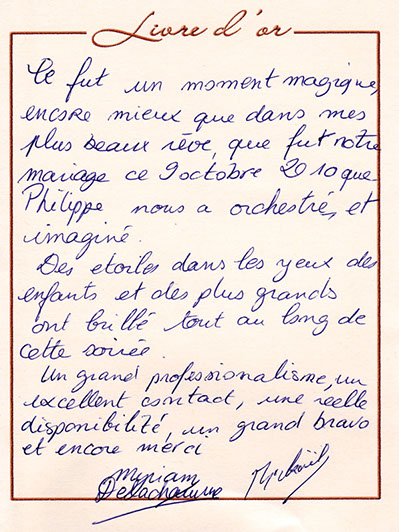 Livre d'or
Ce fut un moment magique,
encore mieux que dans mes
plus beaux rêve, que fut notre
mariage ce 9 octobre 2010 que
Philippe nous a orchestré, et
imaginé.
Des etoiles dans les yeux des
enfants et des plus grands
ont brillé tout au long de
cette soirée.
Un grand professionalisme, un
excellent contact, une réelle
disponibilité, un grand bravo
et encore merci
Myriam